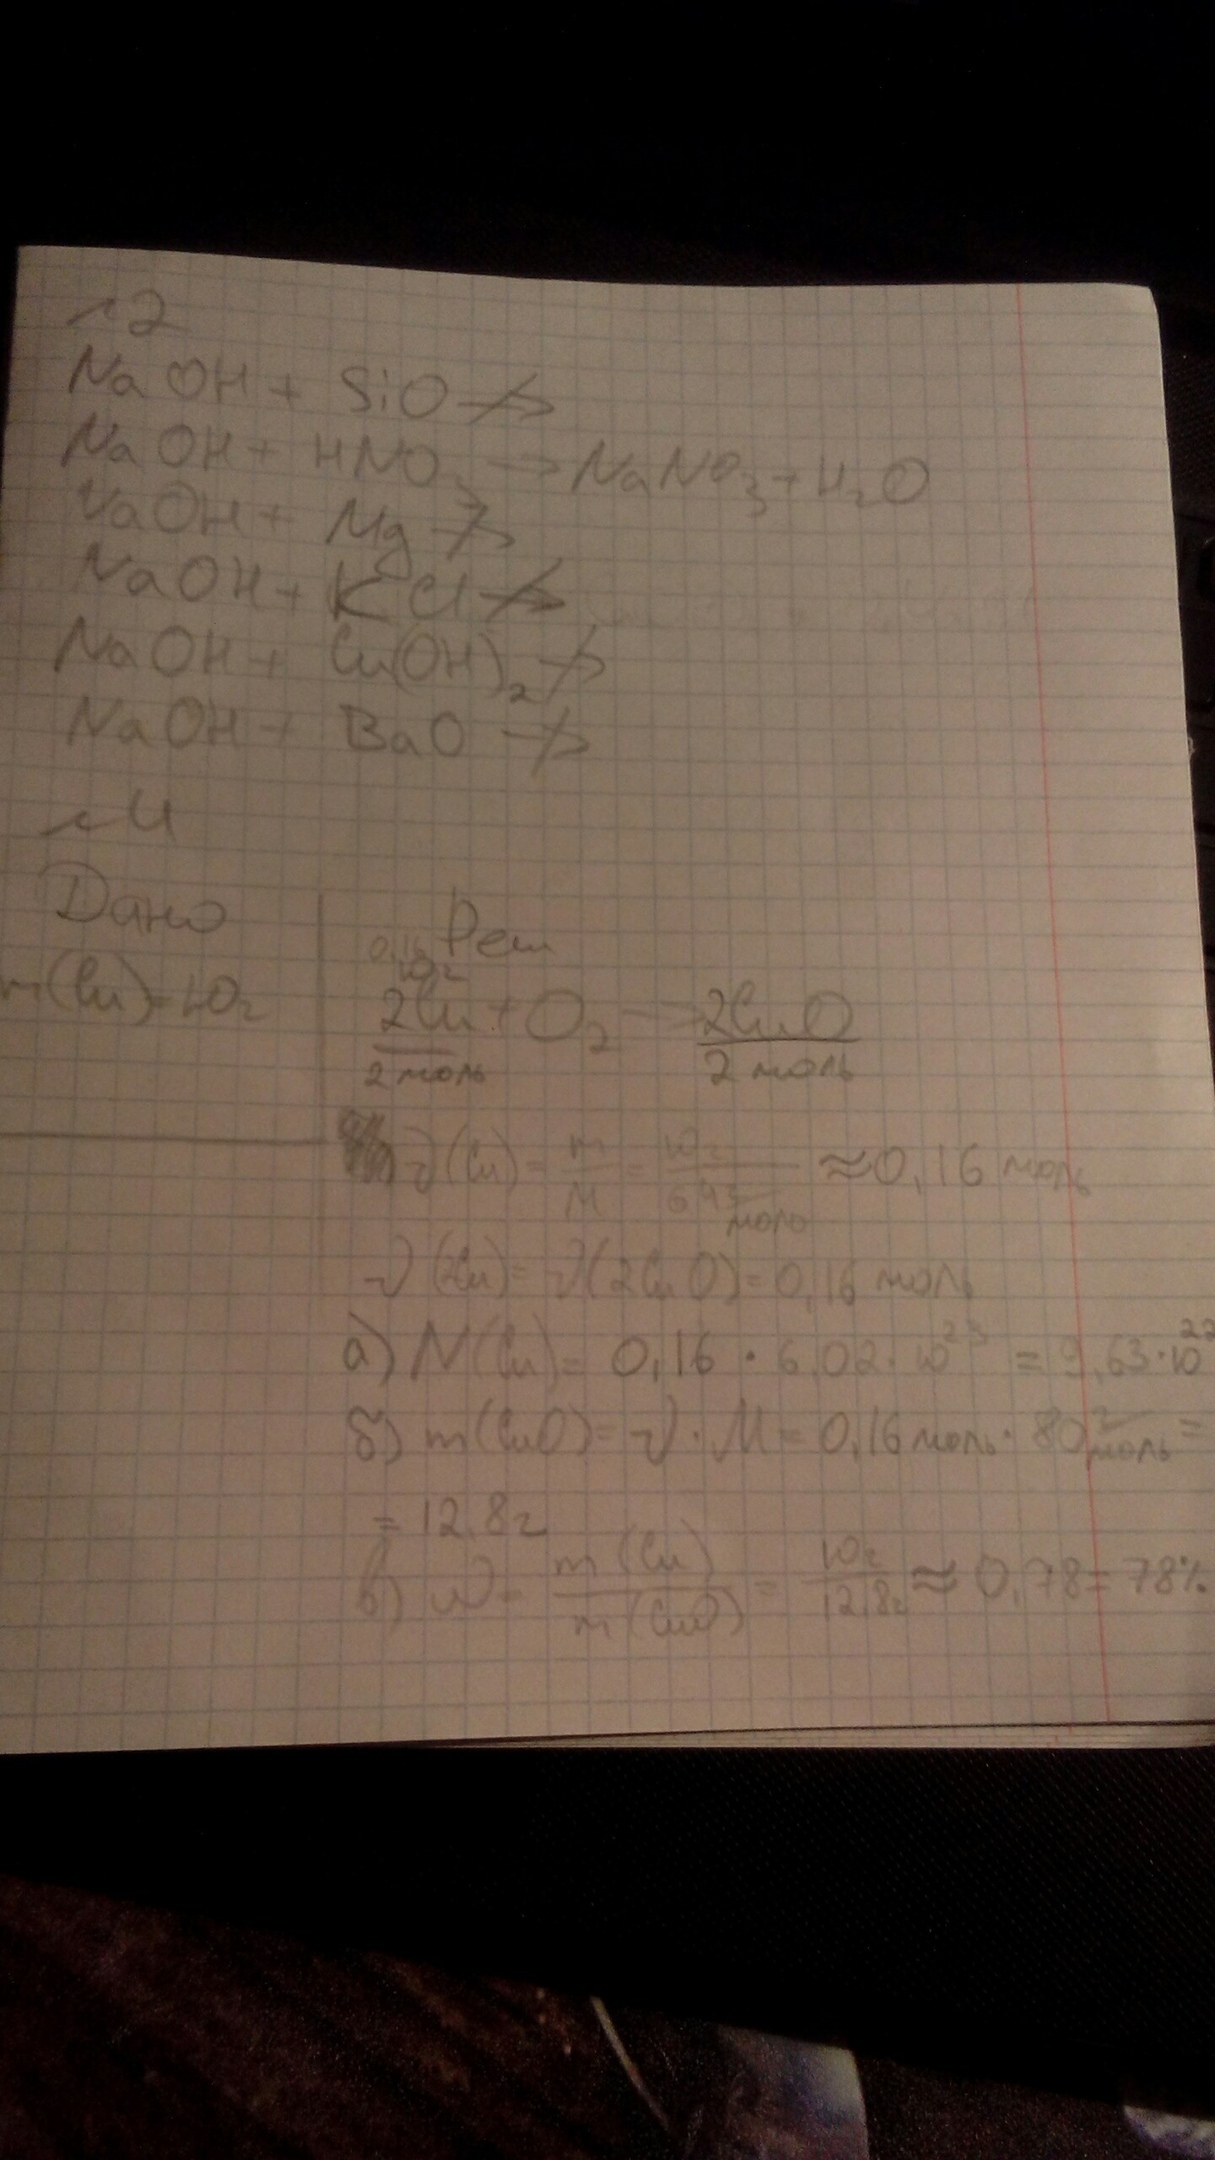 №2
NaOH + SiO ↛
NaOH + HNO₃ → NaNO₃ + H₂O
NaOH + Mg ↛
NaOH + KCl ↛
NaOH + Cu(OH)₂ ↛
NaOH + BaO ↛
№4
Дано
Реш
m(Cu) = 10г
0,16
10г
2Cu + O₂ → 2CuO
2 моль 2 моль
ν(Cu) = m/M = 10г/64 г/моль ≈ 0,16 моль
ν(2Cu) = ν(2CuO) = 0,16 моль
а) N(Cu) = 0,16 · 6,02 · 10²³ = 9,63 · 10²²
б) m(CuO) = ν · M = 0,16 моль · 80 г/моль =
= 12,8г
в) ω = m(Cu)/m(CuO) = 10г/12,8г ≈ 0,78 = 78%